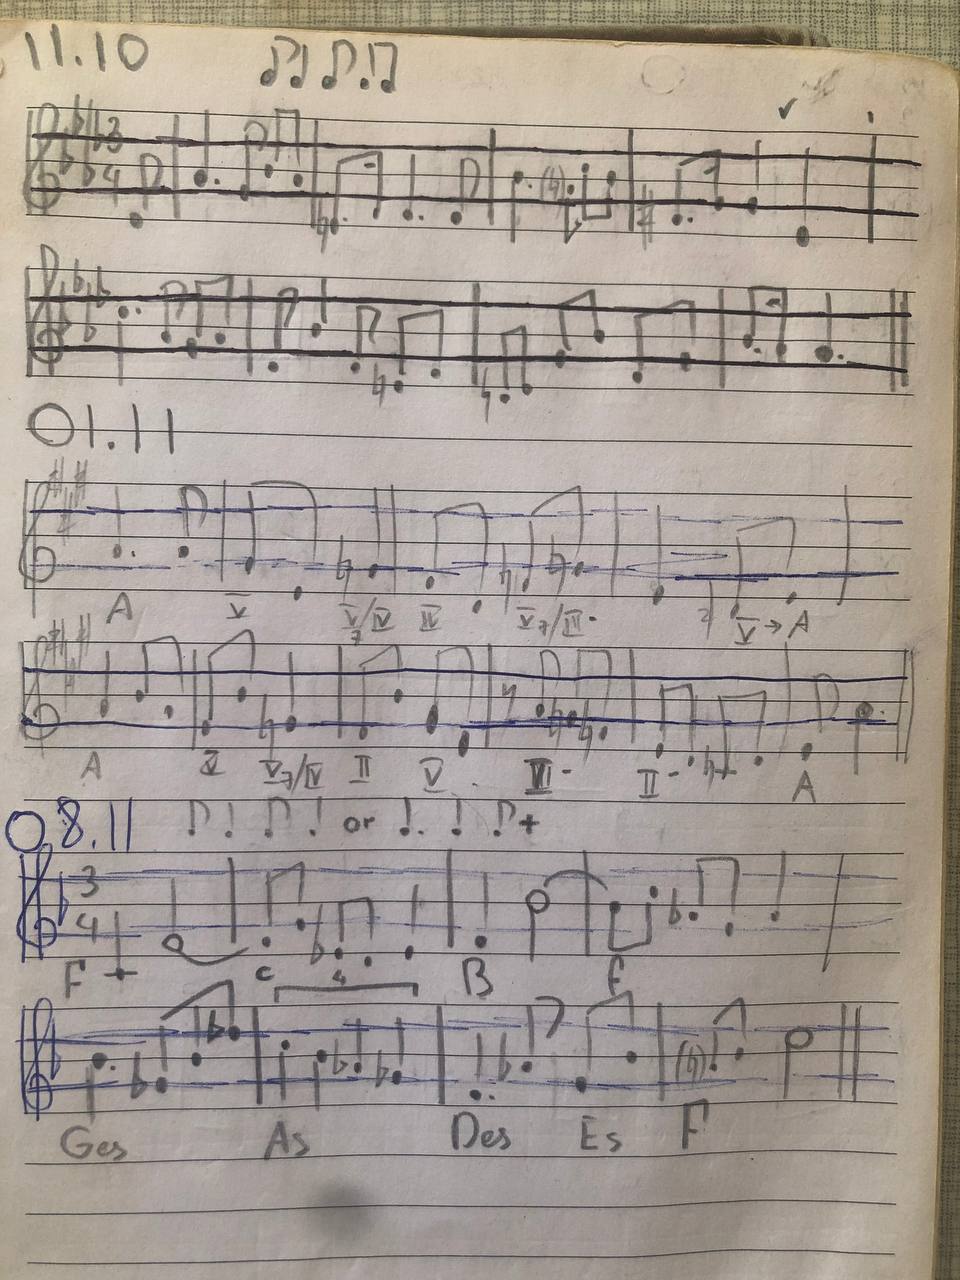 11.10
3
4
01.11
A V V7/IV IV V7/III- V → A
A V V7/IV II V VI- II- A
08.11 or +
3
4
F c B f
4
Ges As Des Es F